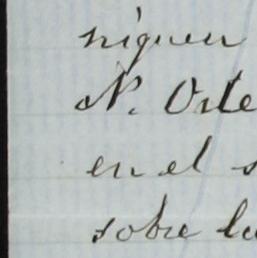 siguen
N. Oste
en el s
sobre la